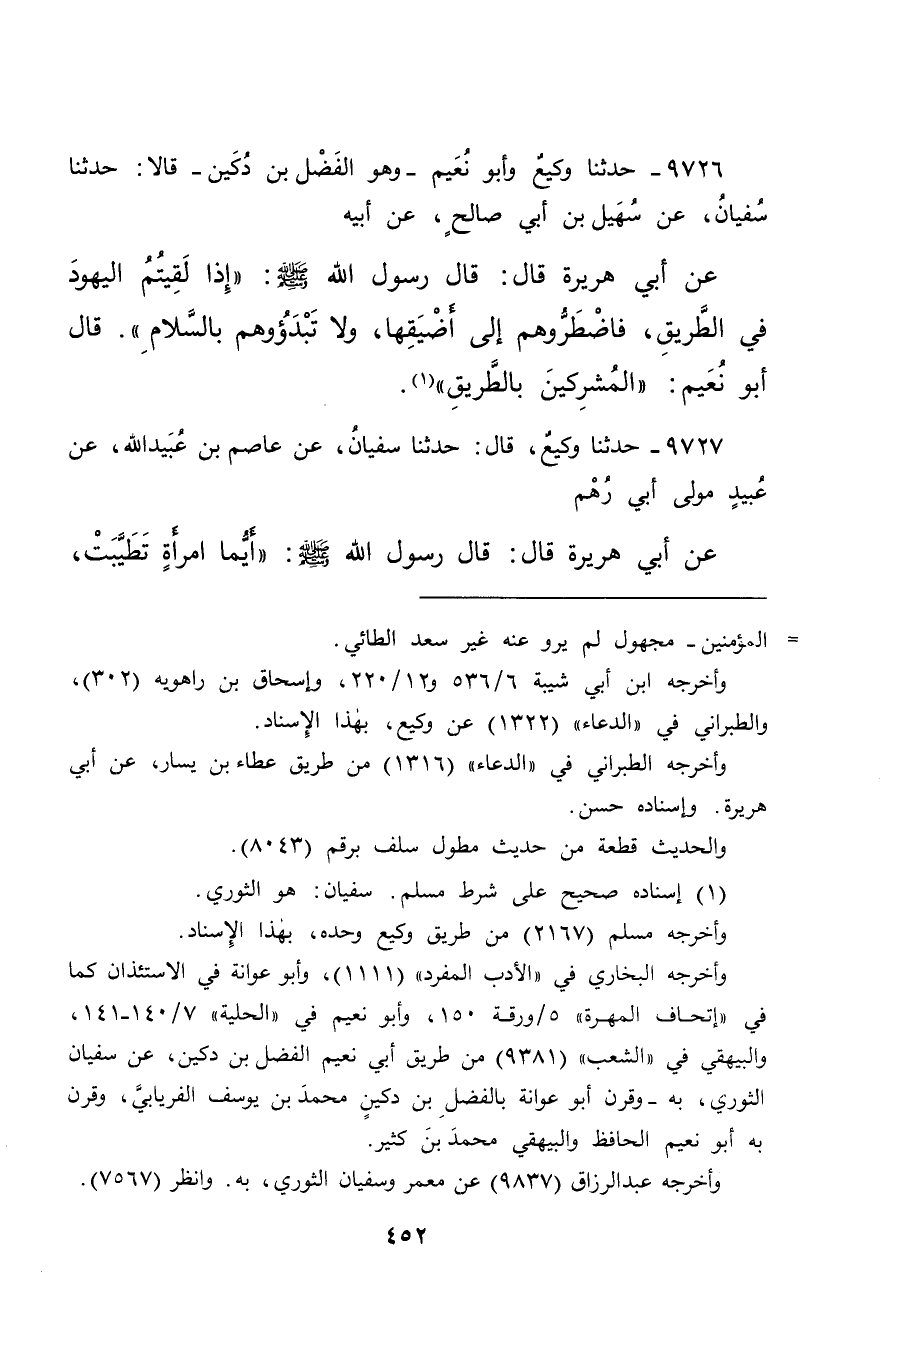 ٩٧٢٦ـ حدثنا وكيعٌ وأبو نُعَيم ـ وهو الفَضْل بن دُكَين ـ قالا: حدثنا
سُفيانُ، عن سُهَيل بن أبي صالحٍ، عن أبيه
عن أبي هريرة قال: قال رسول الله ﷺ: «إِذا لَقِيتُمُ اليهودَ
في الطَّريقِ، فاضْطَرُّوهم إلى أَضْيَقِها، ولا تَبْدَؤُوهم بالسَّلامِ». قال
أبو نُعَيم: «المُشرِكينَ بالطَّريقِ»(١).
٩٧٢٧ـ حدثنا وكيعٌ، قال: حدثنا سفيانُ، عن عاصم بن عُبَيدالله، عن
عُبيدٍ مولى أبي رُهْم
عن أبي هريرة قال: قال رسول الله ﷺ: «أَيُّما امرأَةٍ تَطَيَّبَتْ،
= المؤمنين ـ مجهول لم يرو عنه غير سعد الطائي.
وأخرجه ابن أبي شيبة ٥٣٦/٦ و٢٢٠/١٢، وإسحاق بن راهويه (٣٠٢)،
والطبراني في «الدعاء» (١٣٢٢) عن وكيع، بهٰذا الإسناد.
وأخرجه الطبراني في «الدعاء» (١٣١٦) من طريق عطاء بن يسار، عن أبي
هريرة. وإسناده حسن.
والحديث قطعة من حديث مطول سلف برقم (٨٠٤٣).
(١) إسناده صحيح على شرط مسلم. سفيان: هو الثوري.
وأخرجه مسلم (٢١٦٧) من طريق وكيع وحده، بهٰذا الإسناد.
وأخرجه البخاري في «الأدب المفرد» (١١١١)، وأبو عوانة في الاستئذان كما
في «إتحاف المهرة» ٥/ورقة ١٥٠، وأبو نعيم في «الحلية» ١٤٠/٧-١٤١،
والبيهقي في «الشعب» (٩٣٨١) من طريق أبي نعيم الفضل بن دكين، عن سفيان
الثوري، به ـ وقرن أبو عوانة بالفضلِ بن دكينٍ محمدَ بن يوسف الفريابيَّ، وقرن
به أبو نعيم الحافظ والبيهقي محمدَ بنَ كثير.
وأخرجه عبدالرزاق (٩٨٣٧) عن معمر وسفيان الثوري، به. وانظر (٧٥٦٧).
٤٥٢